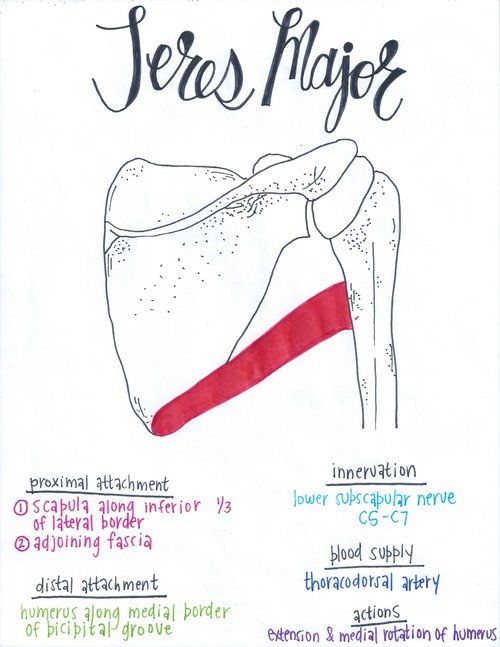 Teres Major
proximal attachment
① scapula along inferior 1/3
of lateral border
② adjoining fascia
distal attachment
humerus along medial border
of bicipital groove
innervation
lower subscapular nerve
C5-C7
blood supply
thoracodorsal artery
actions
extension & medial rotation of humerus